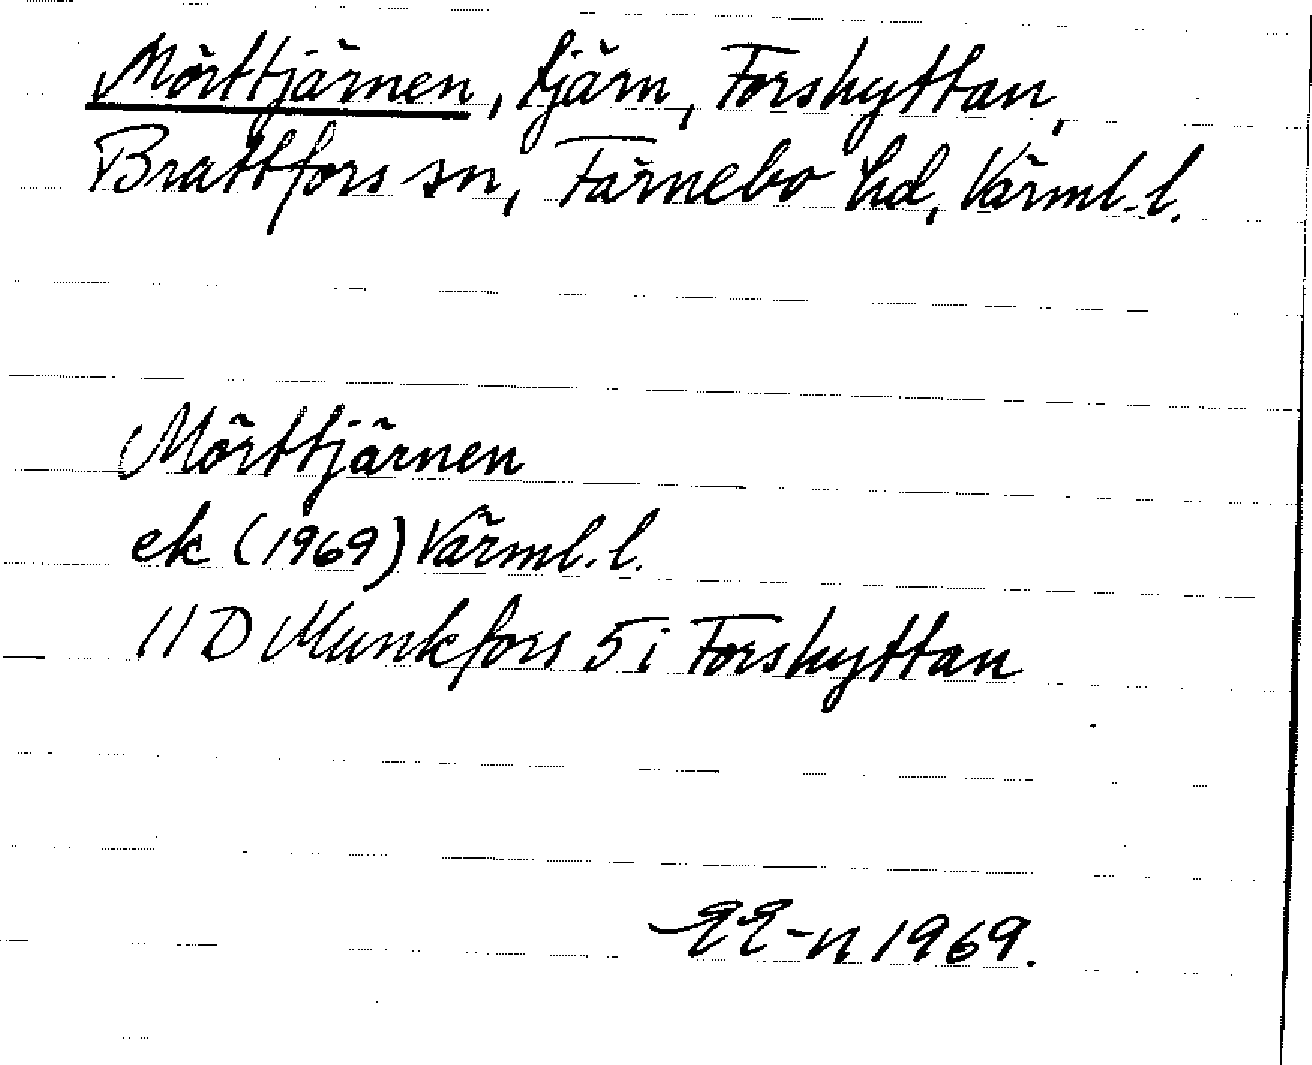 Mörttjärnen, tjärn, Forshyttan,
Brattfors sn, Färnebo hd, Värml. l.
Mörttjärnen
ek (1969) Värml. l.
11 D Munkfors 5 i Forshyttan
EE-n 1969.